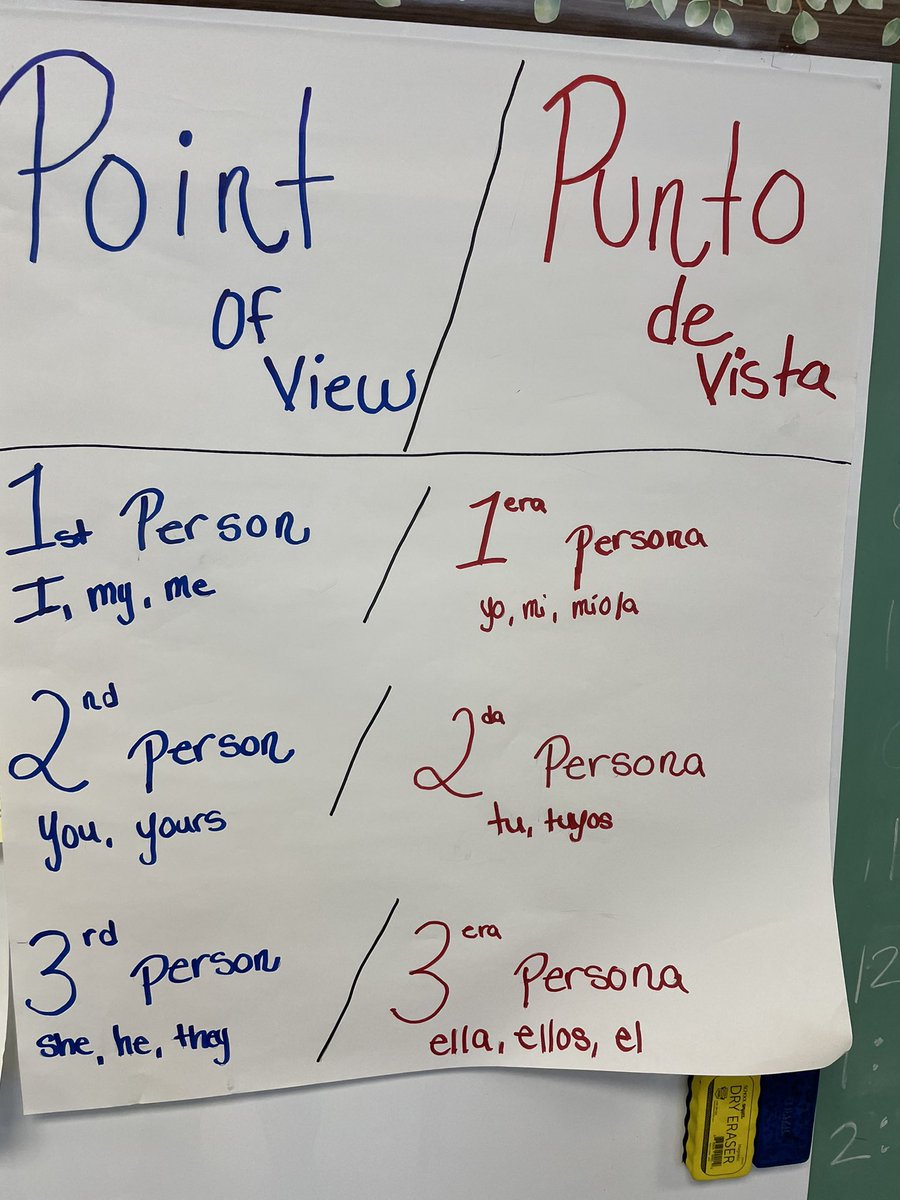 Point
Of
View
Punto
de
Vista
1st Person
I, my, me
1era Persona
yo, mi, mío/a
2nd Person
you, yours
2da Persona
tu, tuyos
3rd Person
she, he, they
3era Persona
ella, ellos, el
DRY ERASER
12
1:
2: